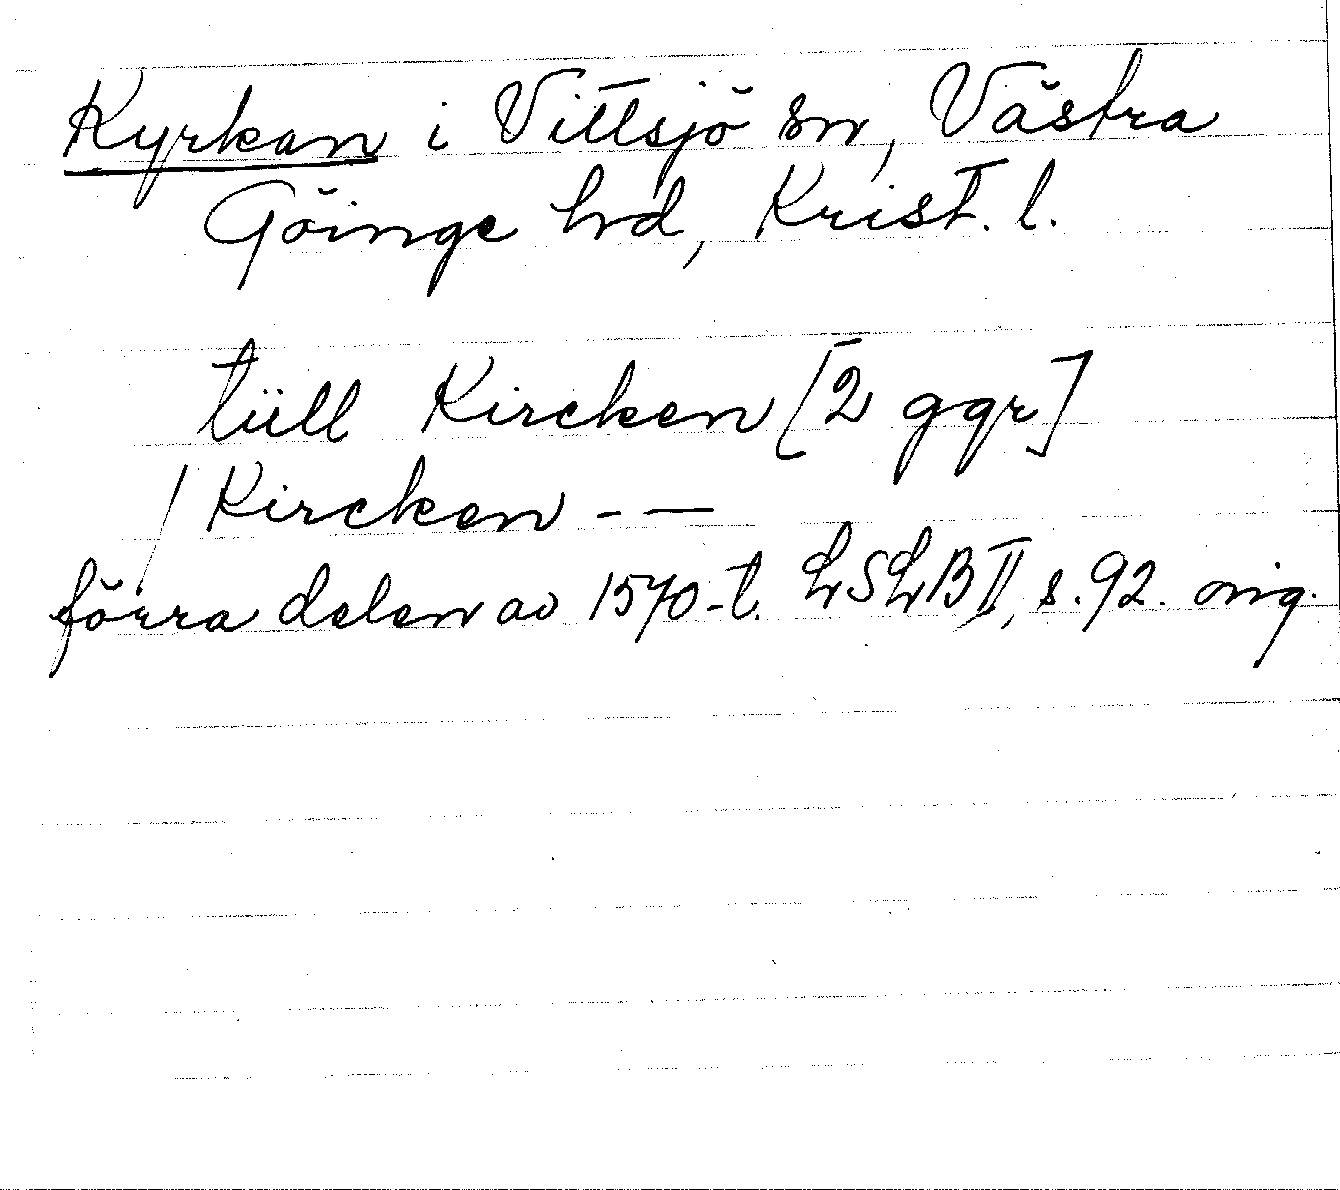 Kyrkan i Vittsjö sn, Västra
Göinge hd, Krist. l.
tüll Kircken [2 ggr]
/ Kircken - —
förra delen av 1570-t. LSLB II, s. 92. orig.